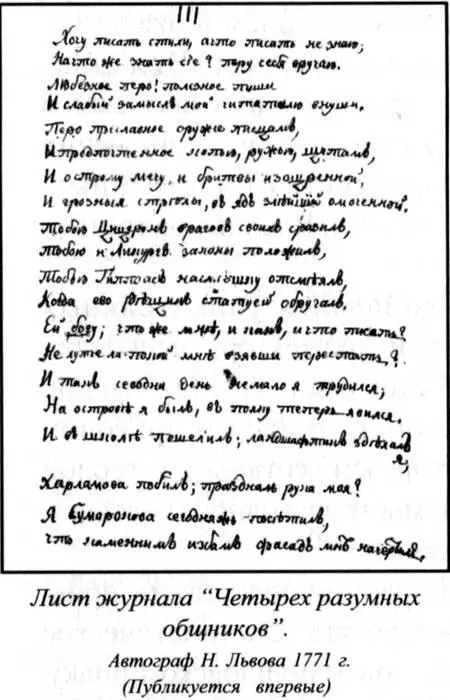 III
Хочу писать стихи, а что писать не знаю;
На что же знать сіе? перу себя вручаю.
Любезное перо! полезное пиши
И слабый замыслъ мой читателю внуши.
Перо преславное оружіе
И предпочтенное копью, ружью, щитамъ,
И острому мечу, и бритвы изощренной,
И грозныя стрѣлы, въ ядъ злѣйшій омоченной.
Тобою Цицеронъ враговъ своихъ сразилъ,
Тобою и Ликургъ законы положилъ,
Тобою насмѣшку отсмѣялъ,
Когда его рѣщикъ статуей обругалъ,
Ей богу; что же мнѣ, и какъ, и что писать?
Не лутче ли покой мнѣ взявши перестать?
И такъ севодни день немало я трудился;
На островѣ я былъ, въ полку теперь явился.
И въ школѣ пошалилъ; ландшафтикъ здѣлалъ я,
Харламова побилъ; праздналь рука моя?
Я Сумарокова севодняжъ посѣтилъ,
Что каменнымъ избамъ фасадъ мнѣ начертилъ.
Лист журнала “Четырех разумных
общников”.
Автограф Н. Львова 1771 г.
(Публикуется впервые)